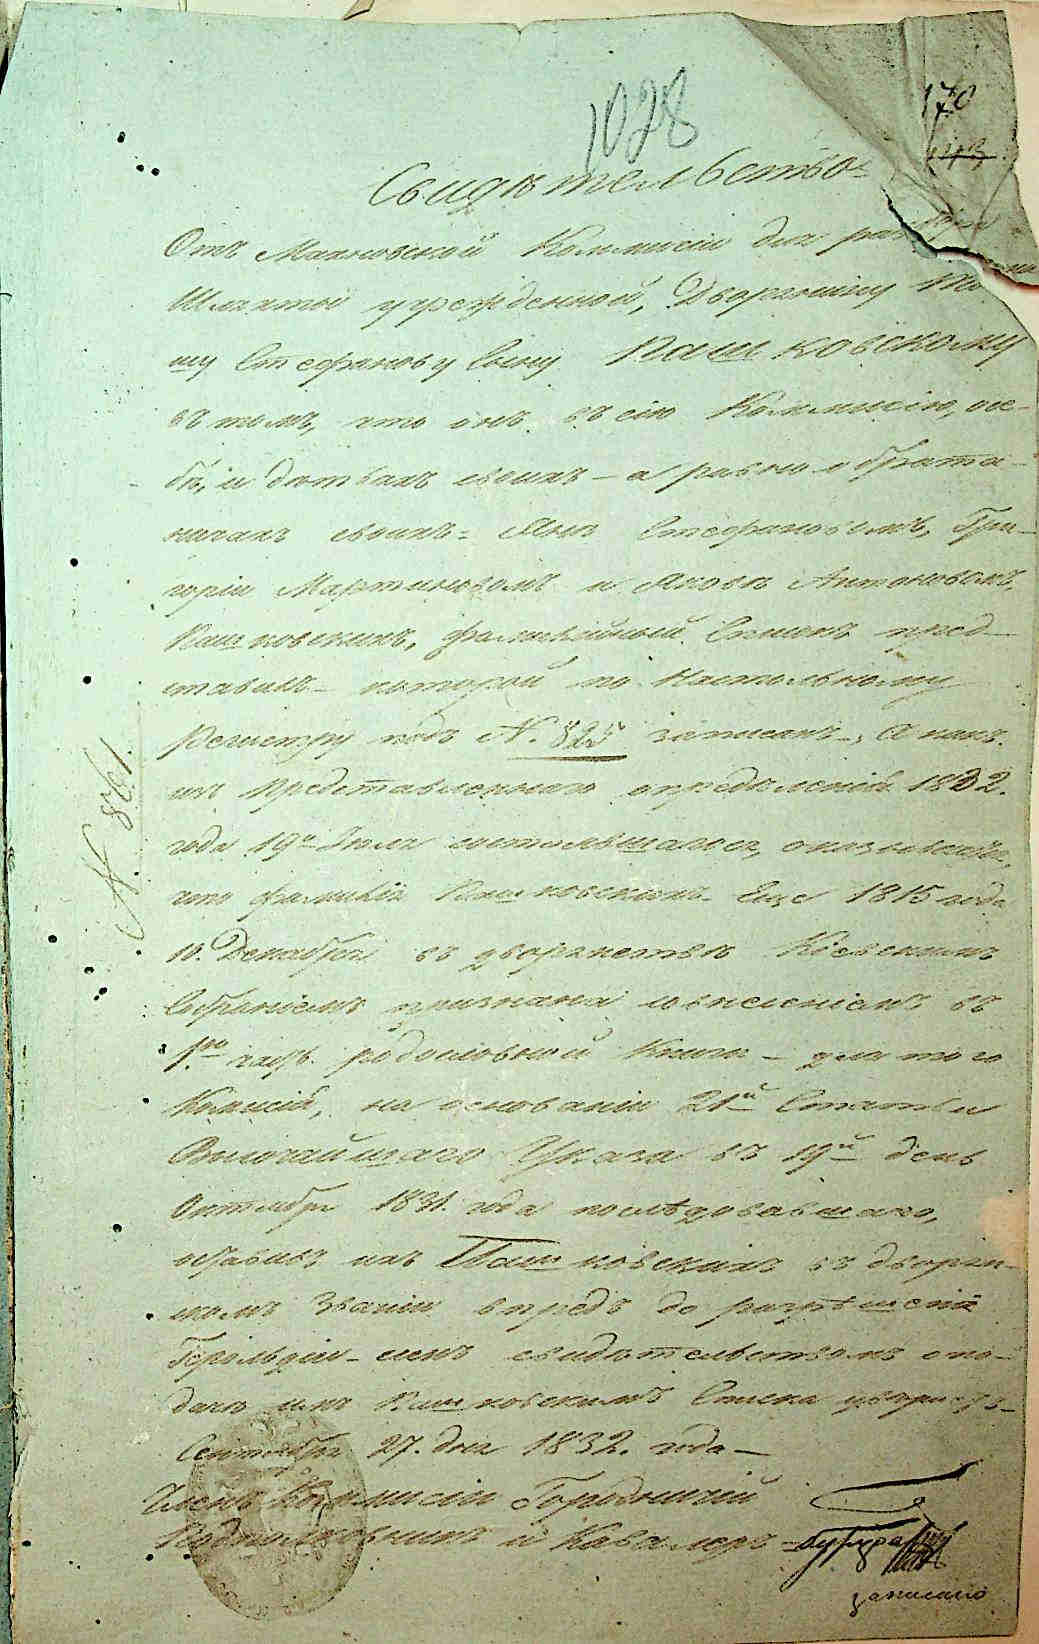 1028
170
Свидѣтельство
Отъ Махновской Коммисіи для
Шляхты учрежденной, Дворянину
шу Стефанову Сыну Пашковскому
въ томъ, что онъ въ сію Коммисію, осе-
бѣ, и дѣтяхъ своихъ – а равно обрата-
ничахъ своихъ = Янѣ Стефановомъ, Гри-
горіи Мартиновомъ и Яковѣ Антоновомъ
Пашковскихъ, фамилійный Списокъ пред-
ставилъ – которой по Настольному
Регистру подъ N. 825 записанъ –, А какъ
изъ представленнаго опредѣленія 1802.
года 19го Іюля состоявшагося, оказывается,
что фамилія Пашковскихъ – Еще 1815 года
10. Декабря въ дворянствѣ Кіевскимъ
Собраніемъ признана совнесеніемъ въ
1ую часть родословной Книги – для того
Комисія, на основаніи 21й Статьи
Высочайшаго Указа въ 19й день
Октября 1831. года послѣдовавшаго,
оставивъ ихъ Пашковскихъ въ дворян-
скомъ Званіи впредь до разрѣшенія
Герольдіи – симъ свидѣтельствомъ опо-
дачѣ имъ Пашковскимъ Списка
Сентября 27. дня 1832. года –
Членъ Коммисіи Городничій
Подполковникъ и Кавалеръ
записано
N 861.